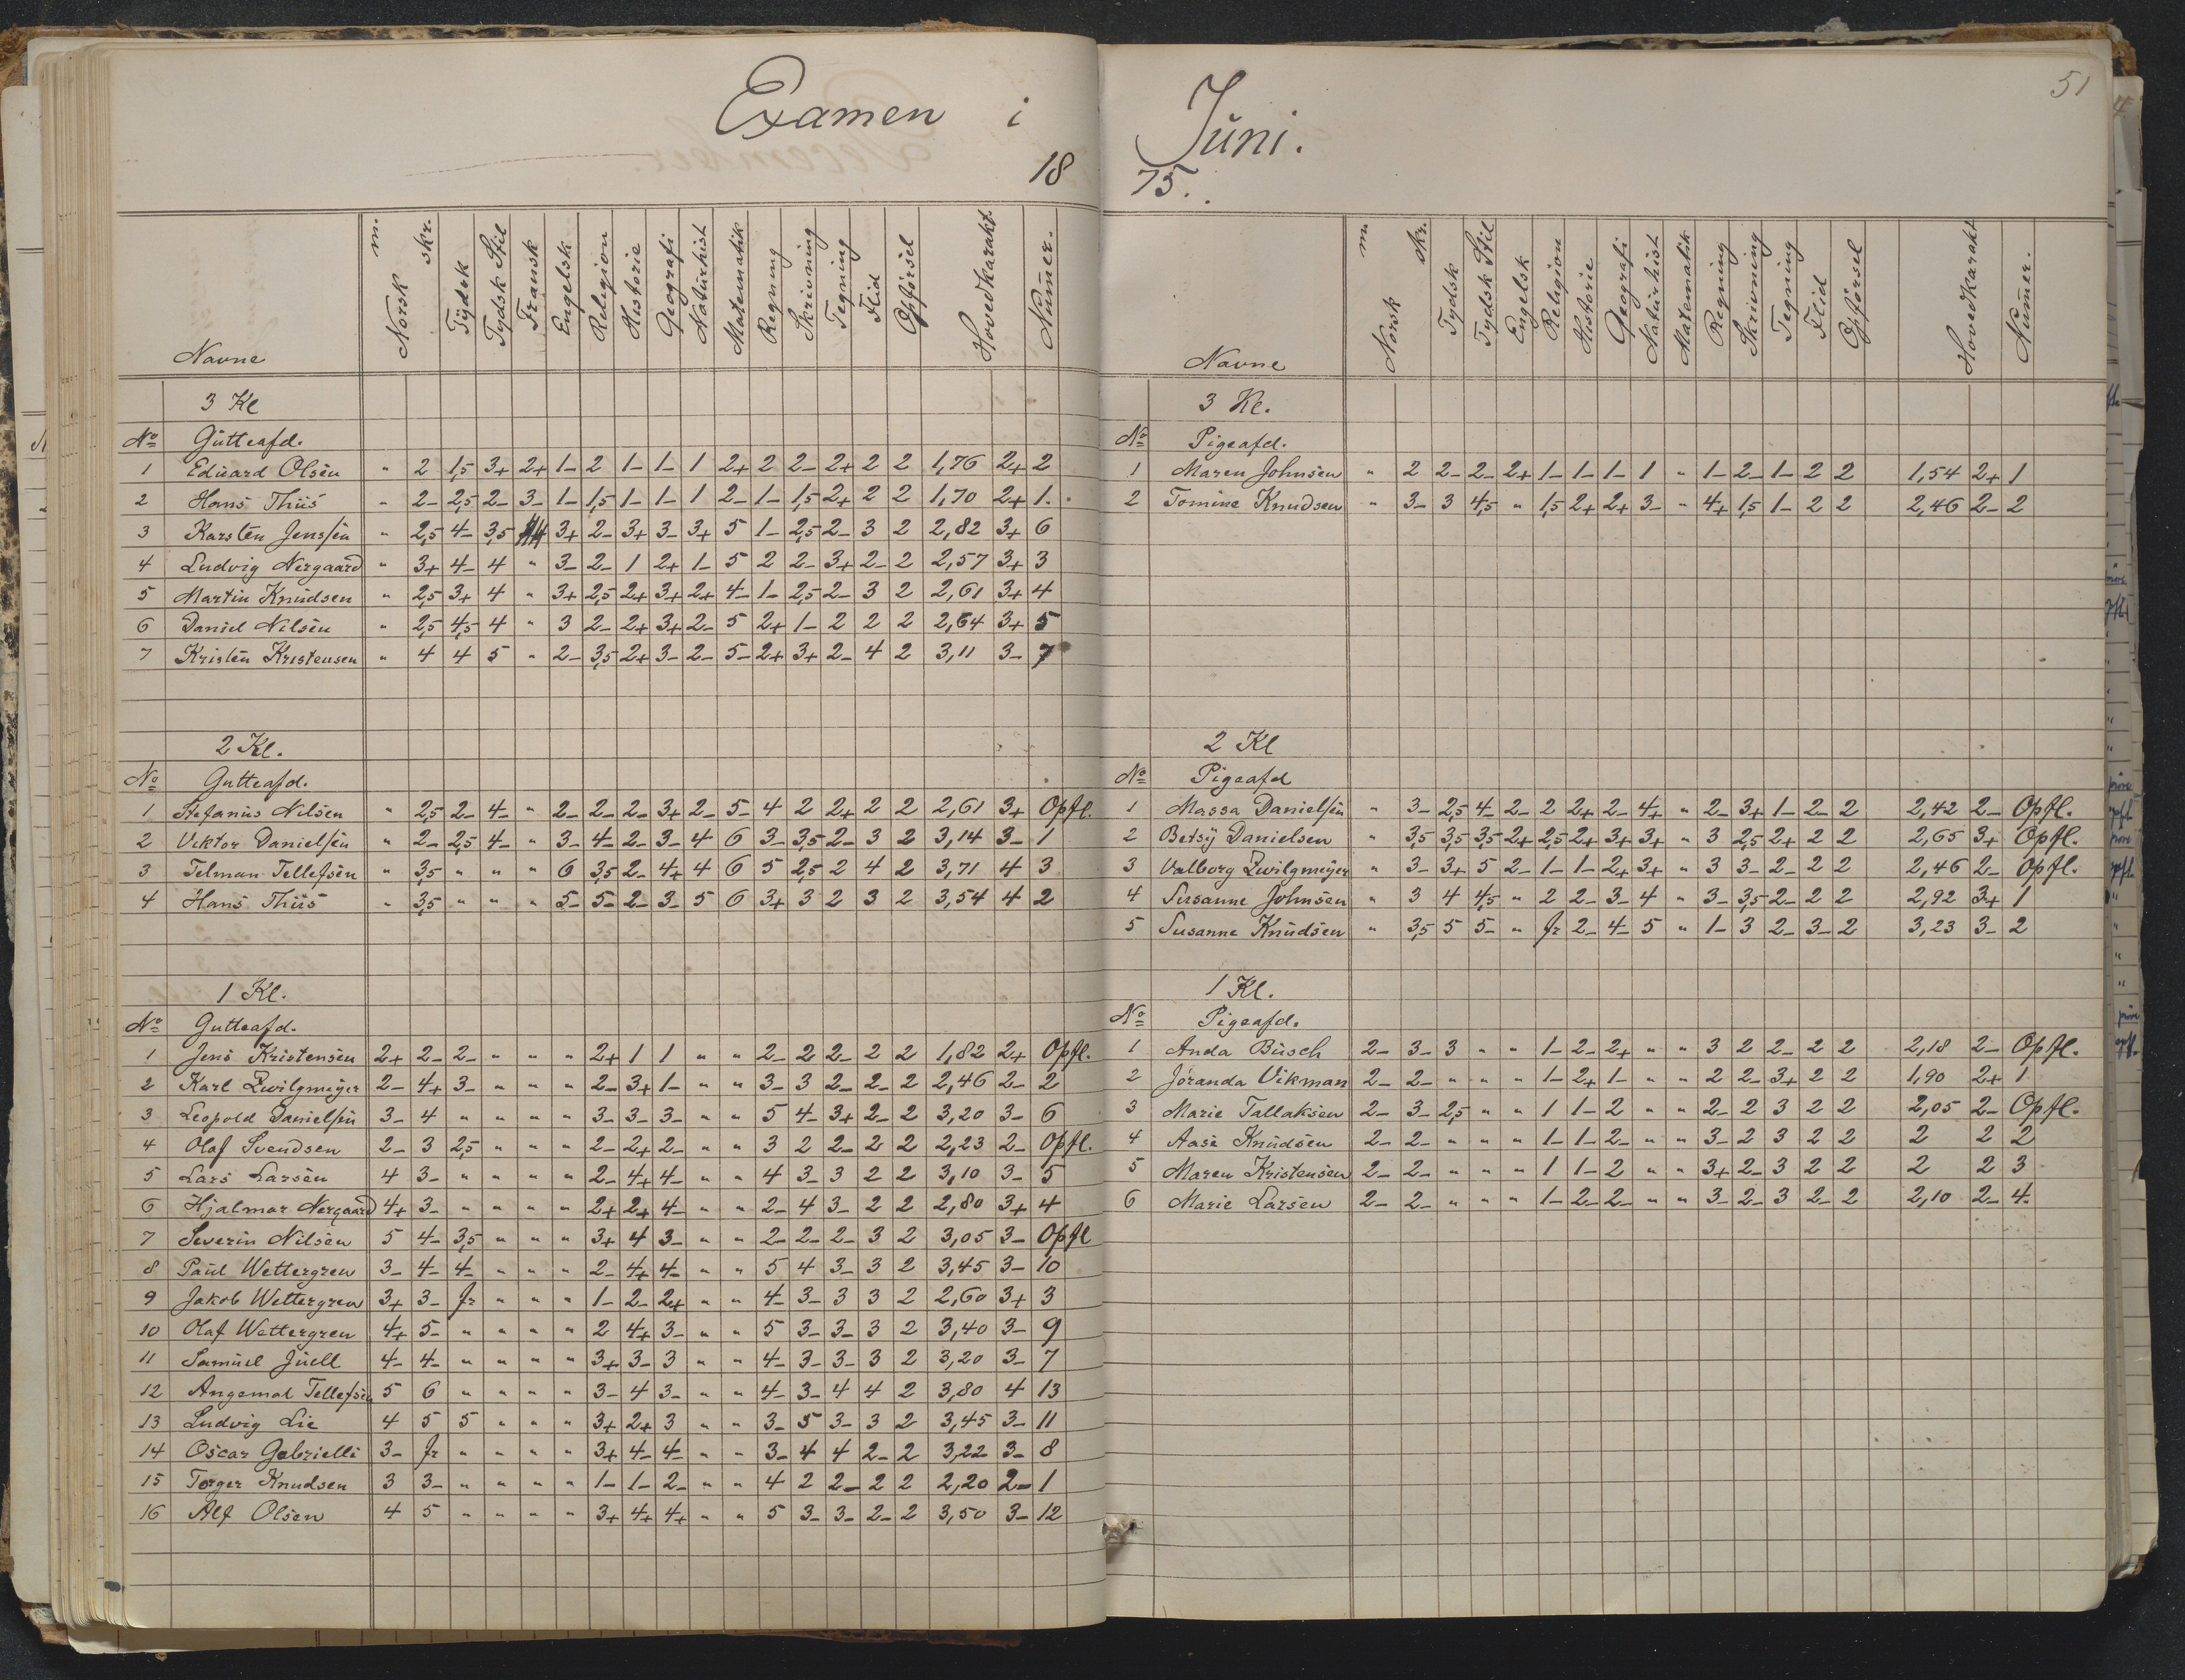 Examen i
18
Navne Norsk m. skr. Tydsk Tydsk Stil Fransk Engelsk Religion Historie Geografi Naturhist Matematik Regning Skrivning Tegning Flid Opførsel Hovedkarakt. Nummer.
3 Kl
No Gutteafd.
1 Edvard Olsen " 2 1,5 3+ 2+ 1- 2 1- 1- 1 2+ 2 2- 2+ 2 2 1,76 2+ 2
2 Hans Thiis " 2- 2,5 2- 3- 1- 1,5 1- 1- 1 2- 1- 1,5 2+ 2 2 1,70 2+ 1.
3 Karsten Jenssen " 2,5 4- 3,5 3+ 2- 3+ 3- 3+ 5 1- 2,5 2- 3 2 2,82 3+ 6
4 Ludvig Nergaard " 3+ 4- 4 " 3- 2- 1 2+ 1- 5 2 2- 3+ 2- 2 2,57 3+ 3
5 Martin Knudsen " 2,5 3+ 4 " 3+ 2,5 2+ 3+ 2+ 4- 1- 2,5 2- 3 2 2,61 3+ 4
6 Daniel Nilsen " 2,5 4,5 4 " 3 2- 2+ 3+ 2- 5 2+ 1- 2 2 2 2,64 3+ 5
7 Kristen Kristensen " 4 4 5 " 2- 3,5 2+ 3- 2- 5- 2+ 3+ 2- 4 2 3,11 3- 7
2 Kl.
No Gutteafd.
1 Stefanus Nilsen " 2,5 2- 4- " 2- 2- 2- 3+ 2- 5- 4 2 2+ 2 2 2,61 3+ Opfl.
2 Viktor Danielsen " 2- 2,5 4- " 3- 4- 2- 3- 4 6 3- 3,5 2- 3 2 3,14 3- 1
3 Telman Tellefsen " 3,5 " " " 6 3,5 2- 4+ 4 6 5 2,5 2 4 2 3,71 4 3
4 Hans Thiis " 3,5 " " " 5- 5- 2- 3- 5 6 3+ 3 2 3 2 3,54 4 2
1 Kl.
No Gutteafd.
1 Jens Kristensen 2+ 2- 2- " " " 2+ 1 1 " " 2- 2 2- 2 2 1,82 2+ Opfl.
2 Karl Zwilgmeyer 2- 4+ 3- " " " 2- 3+ 1- " " 3- 3 2- 2- 2 2,46 2- 2
3 Leopold Danielsen 3- 4 " " " " 3- 3- 3- " " 5 4- 3+ 2- 2 3,20 3- 6
4 Olaf Svendsen 2- 3 2,5 " " " 2- 2+ 2- " " 3 2 2- 2 2 2,23 2- Opfl.
5 Lars Larsen 4 3- " " " " 2- 4+ 4- " " 4 3- 3 2 2 3,10 3- 5
6 Hjalmar Nergaard 4+ 3- " " " " 2+ 2+ 4- " " 2- 4 3- 2 2 2,80 3+ 4
7 Severin Nilsen 5 4- 3,5 " " " 3+ 4 3- " " 2- 2- 2- 3 2 3,05 3- Opfl
8 Paul Wettergren 3- 4- 4- " " " 2- 4+ 4- " " 5 4 3- 3 2 3,45 3- 10
9 Jakob Wettergren 3+ 3- fr " " " 1- 2- 2+ " " 4- 3- 3 3 2 2,60 3+ 3
10 Olaf Wettergren 4+ 5- " " " " 2 4+ 3- " " 5 3- 3- 3 2 3,40 3- 9
11 Samuel Juell 4- 4- " " " " 3+ 3- 3 " " 4- 3- 3- 3 2 3,20 3- 7
12 Angemal Tellefsen 5 6 " " " " 3- 4 3- " " 4- 3- 4 4 2 3,80 4 13
13 Ludvig Lie 4 5 5 " " " 3+ 2+ 3 " " 3- 5 3- 3 2 3,45 3- 11
14 Oscar Gabrielli 3- fr " " " " 3+ 4- 4- " " 3- 4 4 2- 2 3,22 3- 8
15 Torger Knudsen 3 3- " " " " 1- 1- 2- " " 4 2 2- 2 2 2,20 2- 1
16 Alf Olsen 4 5 " " " " 3+ 4+ 4+ " " 5 3- 3- 2- 2 3,50 3- 12
51
Juni.
75.
Navne Norsk m. skr. Tydsk Tydsk Stil Engelsk Religion Historie Geografi Naturhist Matematik Regning Skrivning Tegning Flid Opførsel Hovedkarakt Nummer.
3 Kl.
No Pigeafd.
1 Maren Johnsen " 2 2- 2- 2+ 1- 1- 1- 1 " 1- 2- 1- 2 2 1,54 2+ 1
2 Tomine Knudsen " 3- 3 4,5 " 1,5 2+ 2+ 3- " 4+ 1,5 1- 2 2 2,46 2- 2
2 Kl
No Pigeafd
1 Massa Danielsen " 3- 2,5 4- 2- 2 2+ 2- 4+ " 2- 3+ 1- 2- 2 2,42 2- Opfl.
2 Betsy Danielsen " 3,5 3,5 3,5 2+ 2,5 2+ 3+ 3+ " 3 2,5 2+ 2 2 2,65 3+ Opfl.
3 Valborg Zwilgmeyer " 3- 3+ 5 2- 1- 1- 2+ 3+ " 3 3- 2- 2 2 2,46 2- Opfl.
4 Susanne Johnsen " 3 4 4,5 " 2 2- 3- 4 " 3- 3,5 2- 2 2 2,92 3+ 1
5 Susanne Knudsen " 3,5 5 5- " fr 2- 4- 5 " 1- 3 2- 3- 2 3,23 3- 2
1 Kl.
No Pigeafd.
1 Anda Busch 2- 3- 3 " " 1- 2- 2+ " " 3 2 2- 2 2 2,18 2- Opfl.
2 Jøranda Vikman 2- 2- " " " 1- 2+ 1- " " 2 2- 3+ 2 2 1,90 2+ 1
3 Marie Tallaksen 2- 3- 2,5 " " 1 1- 2 " " 2- 2 3 2 2 2,05 2- Opfl.
4 Aase Knudsen 2- 2- " " " 1- 1- 2- " " 3- 2 3 2 2 2 2 2
5 Maren Kristensen 2- 2- " " " 1 1- 2 " " 3+ 2- 3 2 2 2 2 3
6 Marie Larsen 2- 2- " " " 1- 2- 2- " " 3- 2- 3 2- 2 2,10 2- 4.